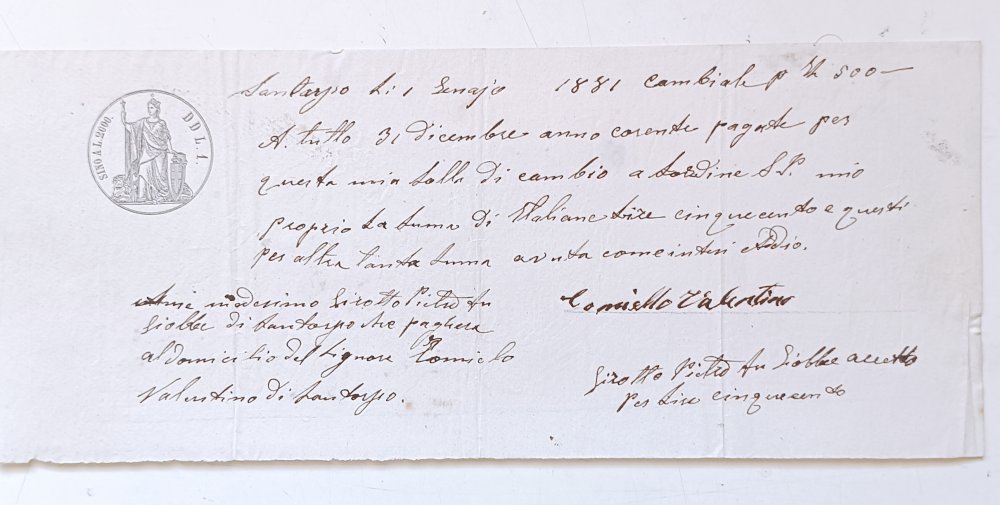 SINO A L. 2000.
DD L. 1.
Santorso li 1 Genajo 1881 Cambiale p £ 500—
A tutto 31 dicembre anno corente pagate per
questa mia solla di cambio a lordine S.P. mio
proprio la suma di Italiane Lire cinquecento e questi
per altra tanta suma avuta comeintesi Addio.
medesimo Girotto Pietro fu
Giobbe di Santorso che paghera
al domicilio del Signore Tomielo
Valentino di Santorso.
Tomiello Valentino
Girotto Pietro fu Giobbe accetto
per lire cinquecento